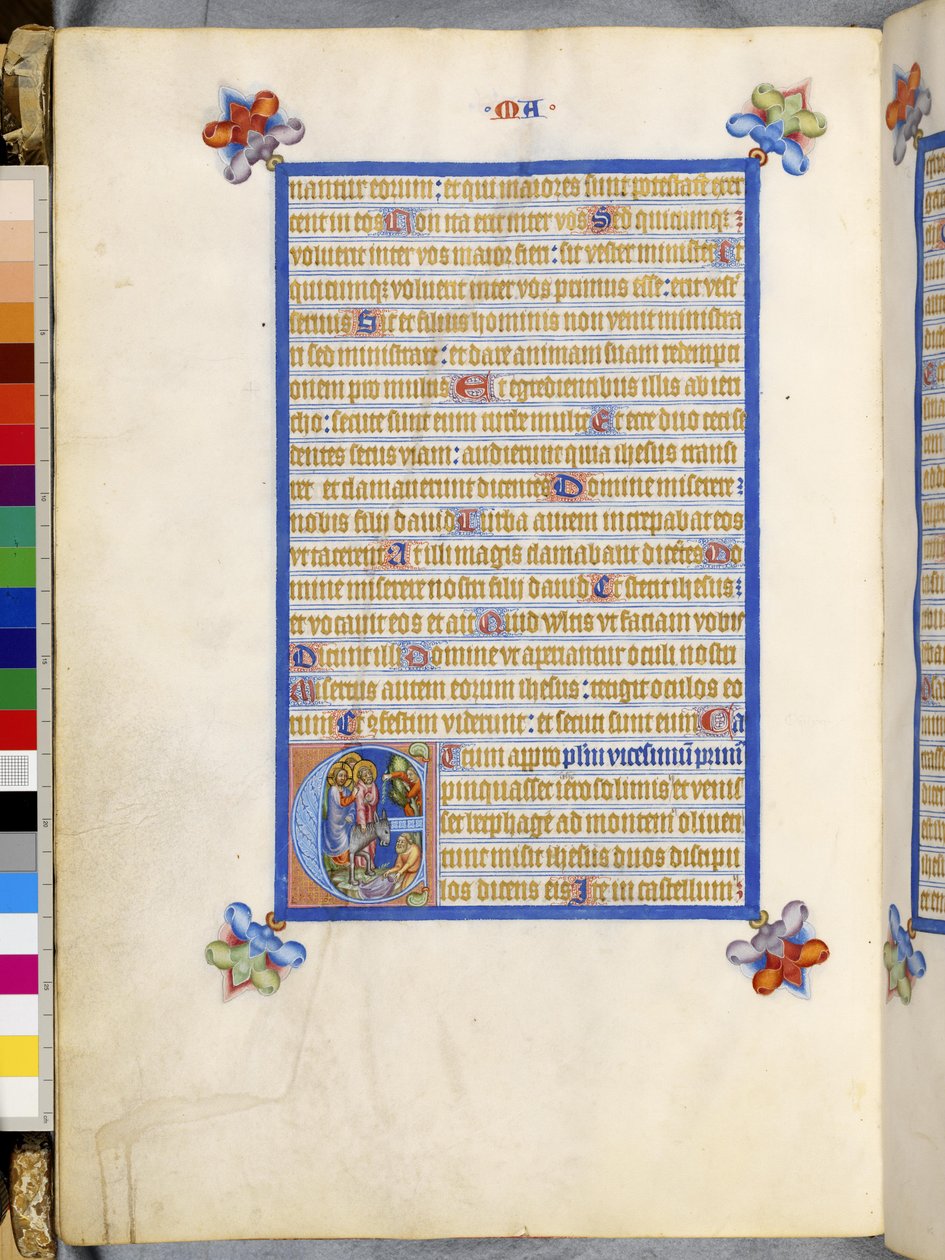 · MA ·
nantur eorum : et qui maiores sunt potestatē exer
cent in eos Non ita erit inter vos Sed quicumqȝ
voluerit inter vos maior fieri : sit vester minister Et
quicumqȝ voluerit inter vos primus esse : erit vestr
seruus Sicut filius hominis non venit ministra
ri sed ministrare : et dare animam suam redempti
onem pro multis Et egredientibus illis ab ieri
cho : secute sunt eum turbe multe Et ecce duo ceci se
dentes secus viam : audierunt quia ihesus transi
ret et clamauerunt dicentes Domine miserere
nobis fili dauid Turba autem increpabat eos
vt tacerent At illi magis clamabant dicētes Do
mine miserere nostri fili dauid Et stetit ihesus
et vocauit eos et ait Quid vltis vt faciam vobis
Dicunt illi Domine vt aperiantur oculi nostri
Misertus autem eorum ihesus : tetigit oculos eo
rum Et 9festim viderunt : et secuti sunt eum Ca
Et cum appro plm vicesimū primū
pinquasset ierosolimis et venis
set bethphage ad montem oliueti
tunc misit ihesus duos discipu
los dicens eis Ite in castellum